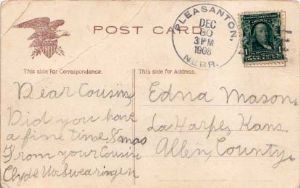 POST CARD
PLEASANTON,
DEC
30
3 PM
1908
NEBR.
This side for Correspondence.
This side for Address.
Dear Cousin
Did you have
a fine time Xmas
From your Cousin
Clyde
Edna Mason
LaHarpe Kans
Allen County